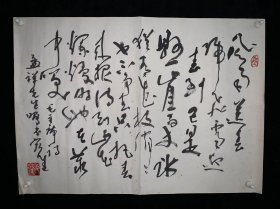 风雨送春
归飞雪迎
春到已是
悬崖百丈冰
犹有花枝俏俏
也不争春只把春
来报待到山花
烂漫时她在丛
中笑 毛主席词
先生嘱书